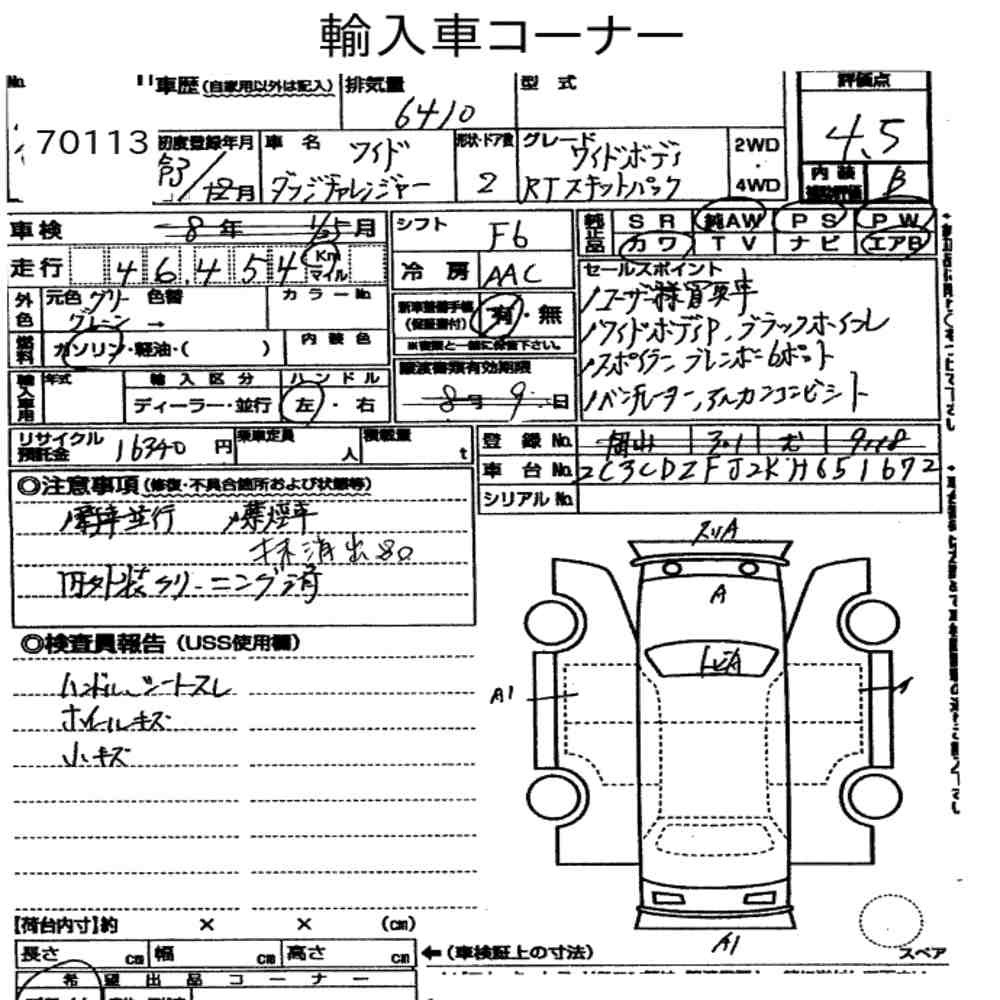 輸入車コーナー
No.
車歴(自家用以外は記入)
排気量
6410
型式
評価点
4.5
70113
初度登録年月
R3/12月
車名
ワイド
ダッジチャレンジャー
形状・ドア数
2
グレード
ワイドボディ
RTスキャットパック
2WD
・
4WD
内装
補助評価
B
車検 8年 1/25月
シフト F6
純正品
SR 純AW PS PW
カワ TV ナビ エアB
走行 46,454 Km マイル
冷房 AAC
セールスポイント
ユーザー様買取車
ワイドボディP、ブラックホイール
スポイラー、ブレンボー6ポット
ベンチレーター、アルカンコンビシート
外色
元色 グリーン 色替
グレーン→
カラーNo.
新車整備手帳(保証書付)
有・無
※書類と一緒に保管下さい。
燃料
ガソリン・軽油・( )
内装色
譲渡書類有効期限
8月 9日
輸入車用
年式
輸入区分
ディーラー・並行
ハンドル
左・右
リサイクル預託金 16340円
乗車定員 人
積載量 t
登録No. 岡山 301 む 9118
車台No. 2C3CDZFJ2KH651672
シリアルNo.
◎注意事項(修復・不具合箇所および状態等)
新車並行 禁煙車
抹消出80
内外装クリーニング済
◎検査員報告(USS使用欄)
ハンドル、シートスレ
ホイールキズ
小キズ
スリA
A
トビA
A1
1
A1
スペア
【荷台内寸】約 × × (cm)
長さ cm 幅 cm 高さ cm ←(車検証上の寸法)
希望出品コーナー